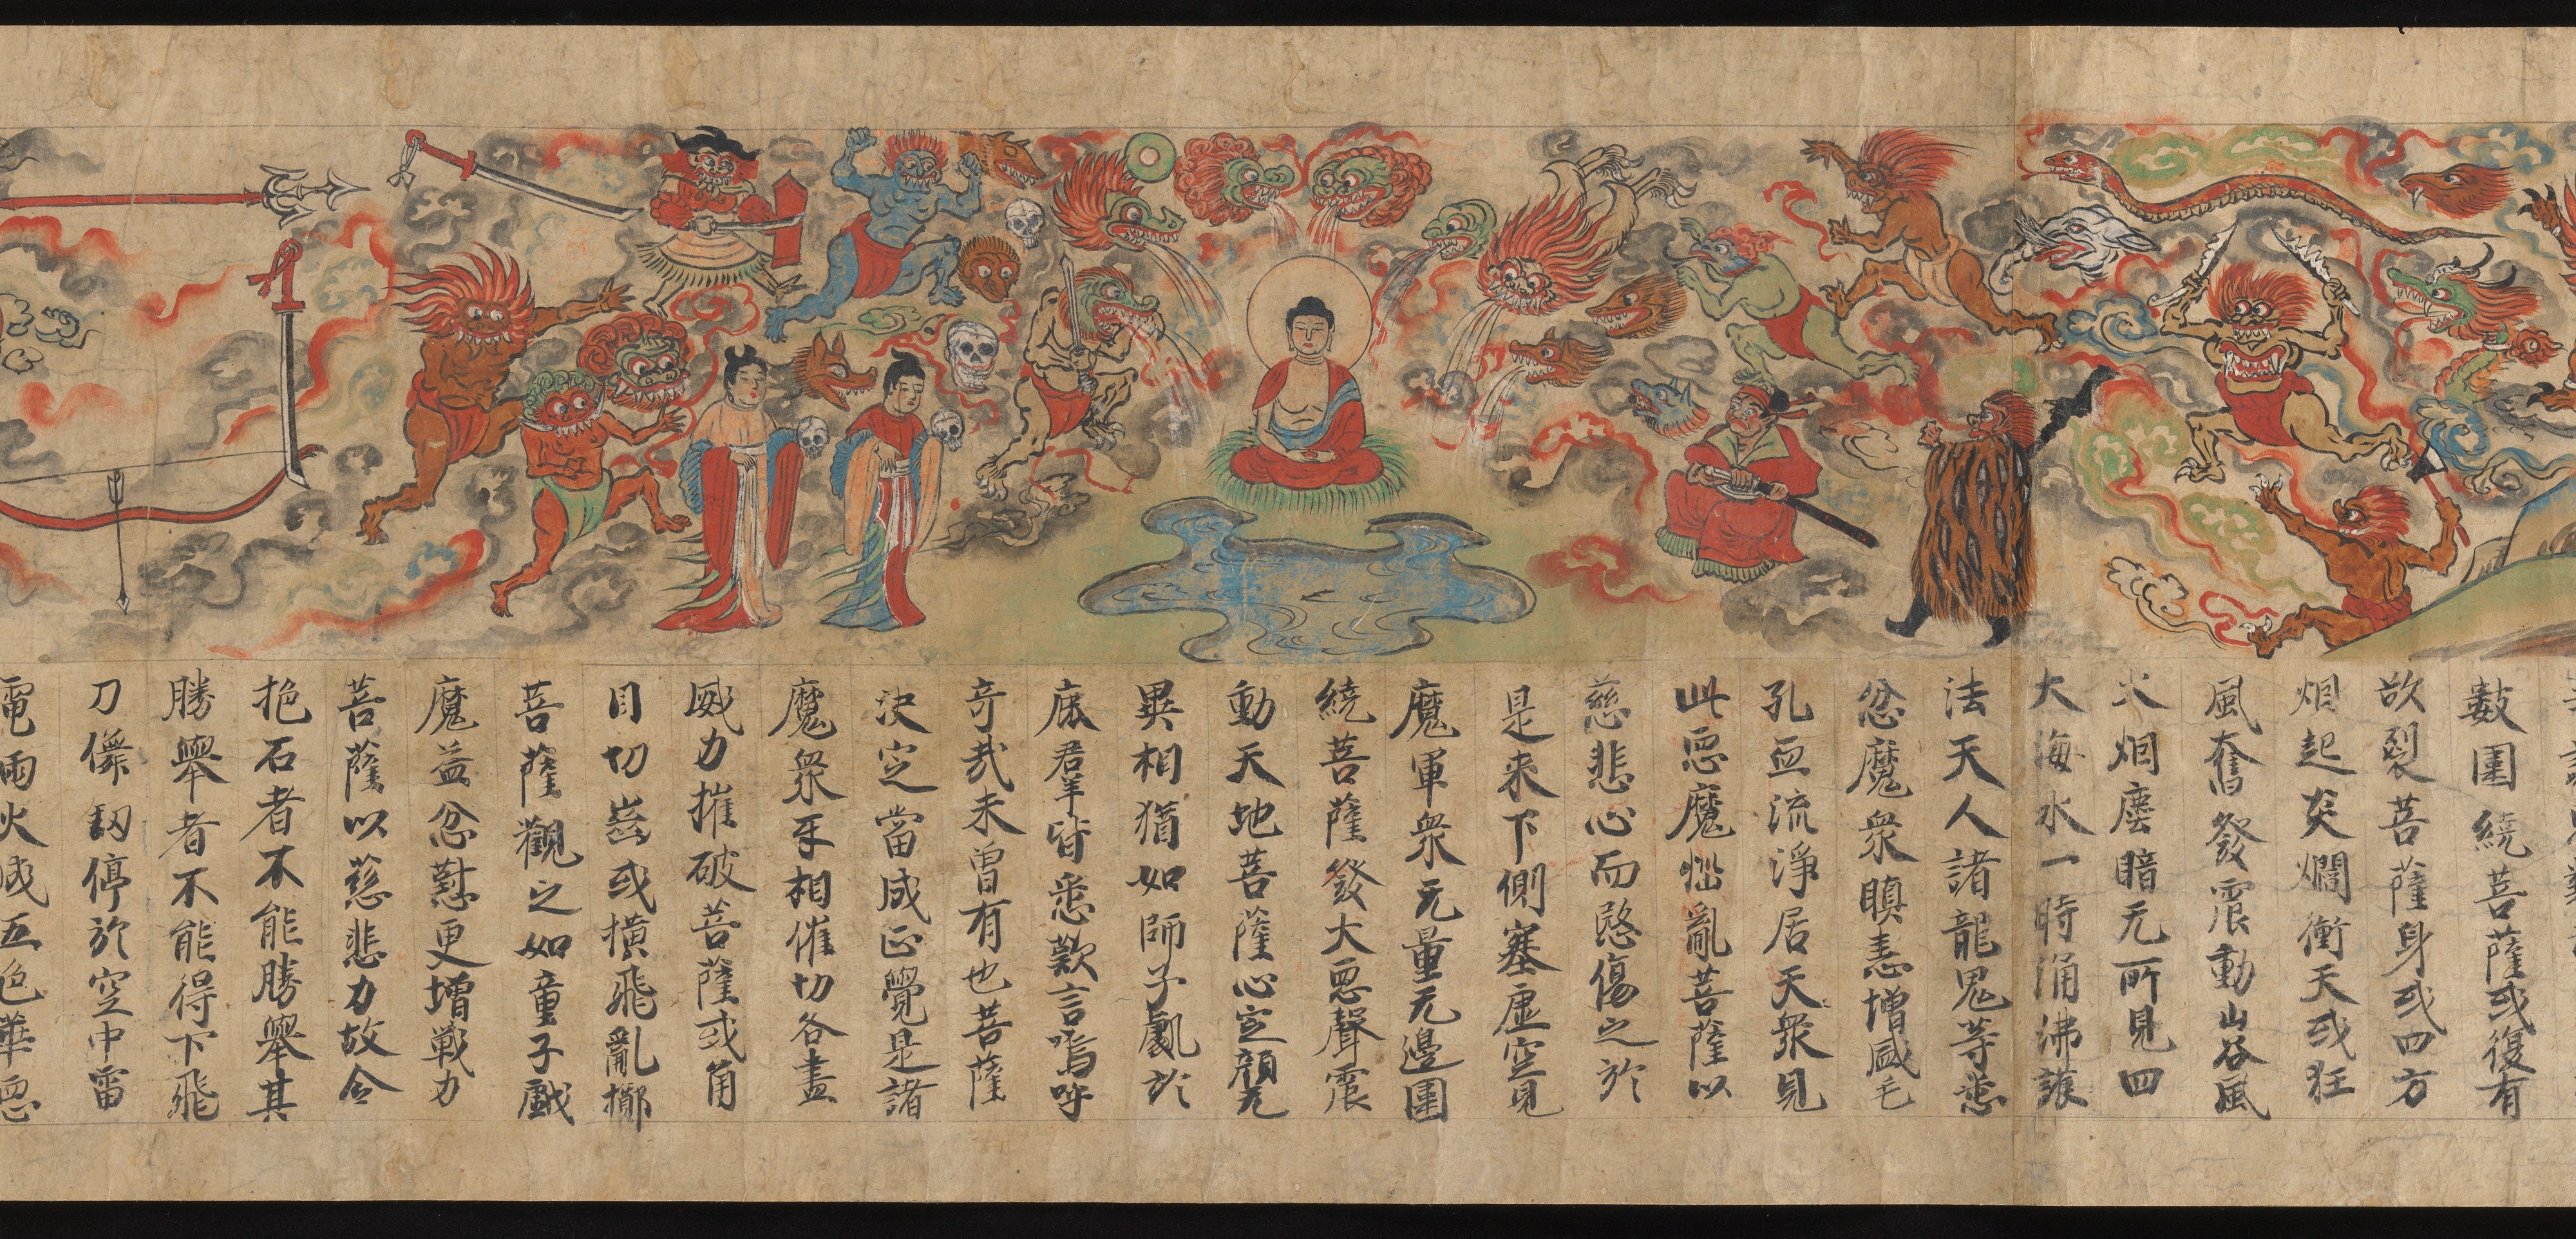 數圍繞菩薩或復有
欲裂菩薩身或四方
烟起炎爓衝天或狂
風奮發震動山谷風
火烟塵暗无所見四
大海水一時涌沸護
法天人諸龍鬼等悉
忿魔衆瞋恚增盛毛
孔血流淨居天衆見
此惡魔惱亂菩薩以
慈悲心而愍傷之於
是來下側塞虛空見
魔軍衆无量无邊圍
繞菩薩發大惡聲震
動天地菩薩心定顏无
異相猶如師子劇於
鹿群皆悉歎言嗚呼
奇哉未曾有也菩薩
決定當成正覺是諸
魔衆互相催切各盡
威力摧破菩薩或角
目切齒或橫飛亂擲
菩薩觀之如童子戲
魔益忿懟更增戰力
菩薩以慈悲力故令
抱石者不能勝舉其
勝舉者不能得下飛
刀儛釼停於空中雷
電雨火成五色華惡